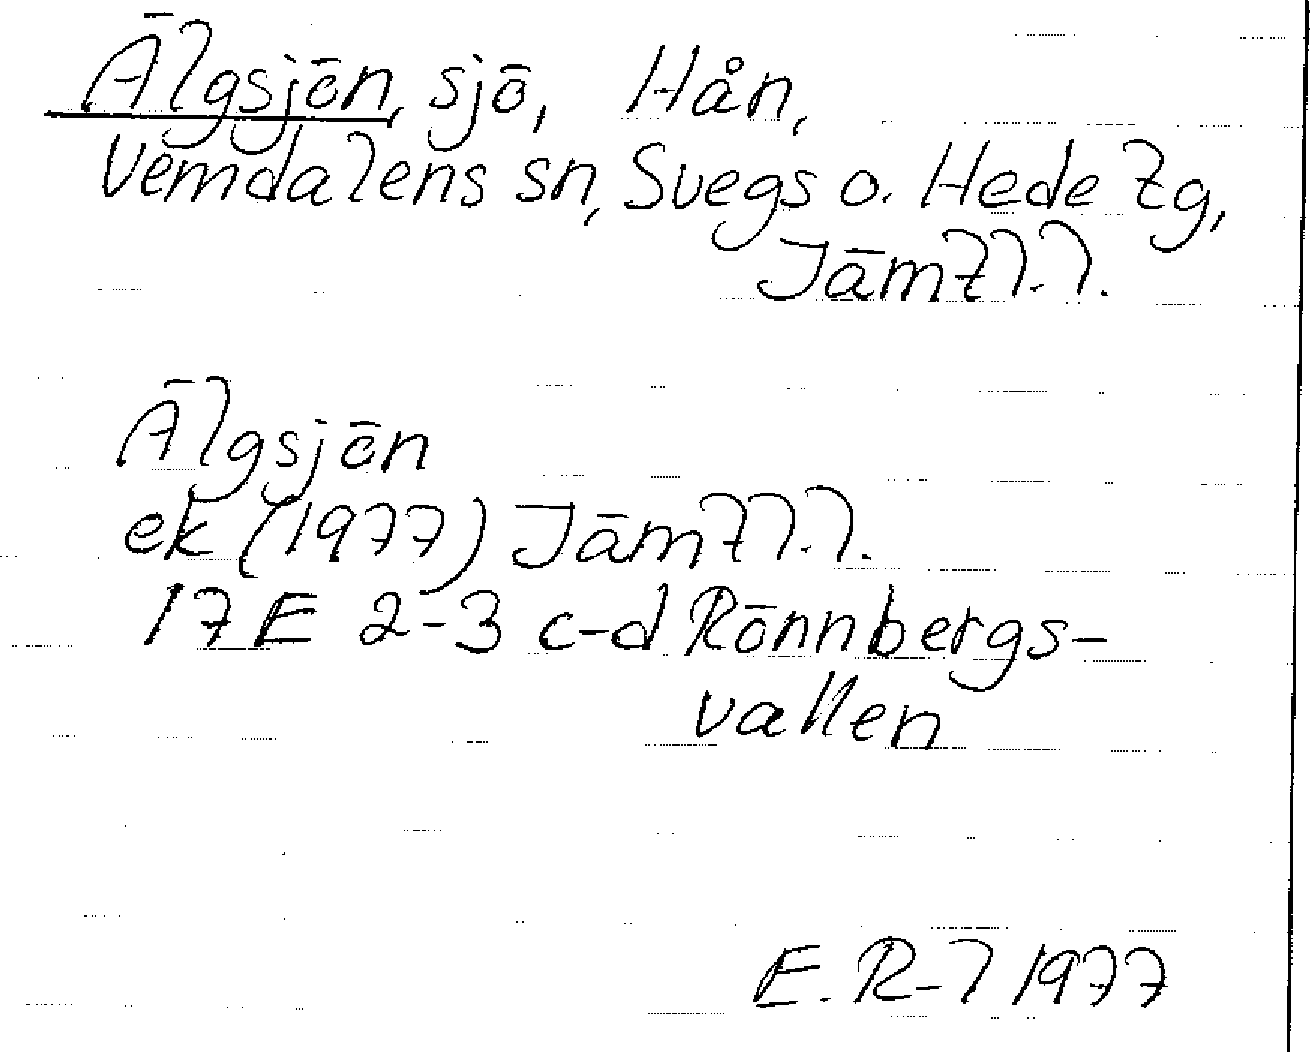 Älgsjön, sjö, Hån,
Vemdalens sn, Svegs o. Hede tg,
Jämtl. l.
Älgsjön
ek (1977) Jämtl. l.
17E 2-3 c-d Rönnbergs-
vallen
E. R-l 1977